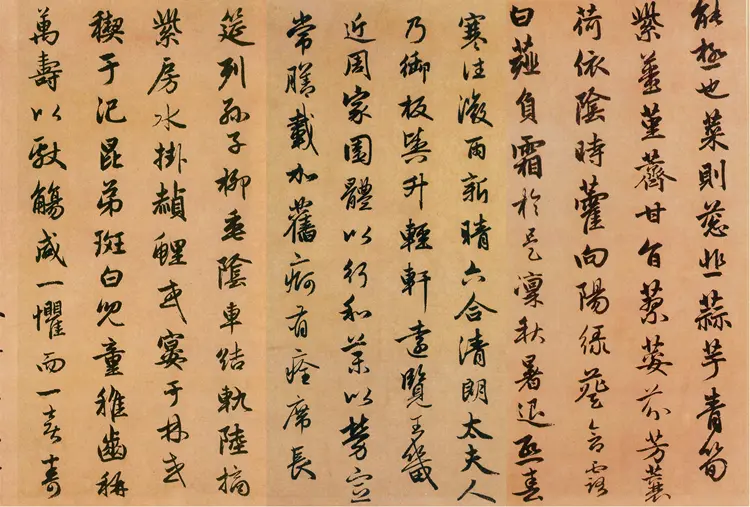 能極也菜則蔥韭蒜芋青筍
紫薑堇薺甘旨蓼荾芬芳蘘
荷依陰時藿向陽緑葵含露
白薤負霜於是凜秋暑退熙春
寒往微雨新晴六合清朗太夫人
乃御板輿升輕軒遠覽王畿
近周家園體以行和藥以勞宣
常膳載加舊痾有痊席長
筵列孫子柳垂陰車結軌陸摘
紫房水掛赬鯉或宴于林或
禊于汜昆弟斑白兒童稚齒稱
萬壽以獻觴咸一懼而一喜壽